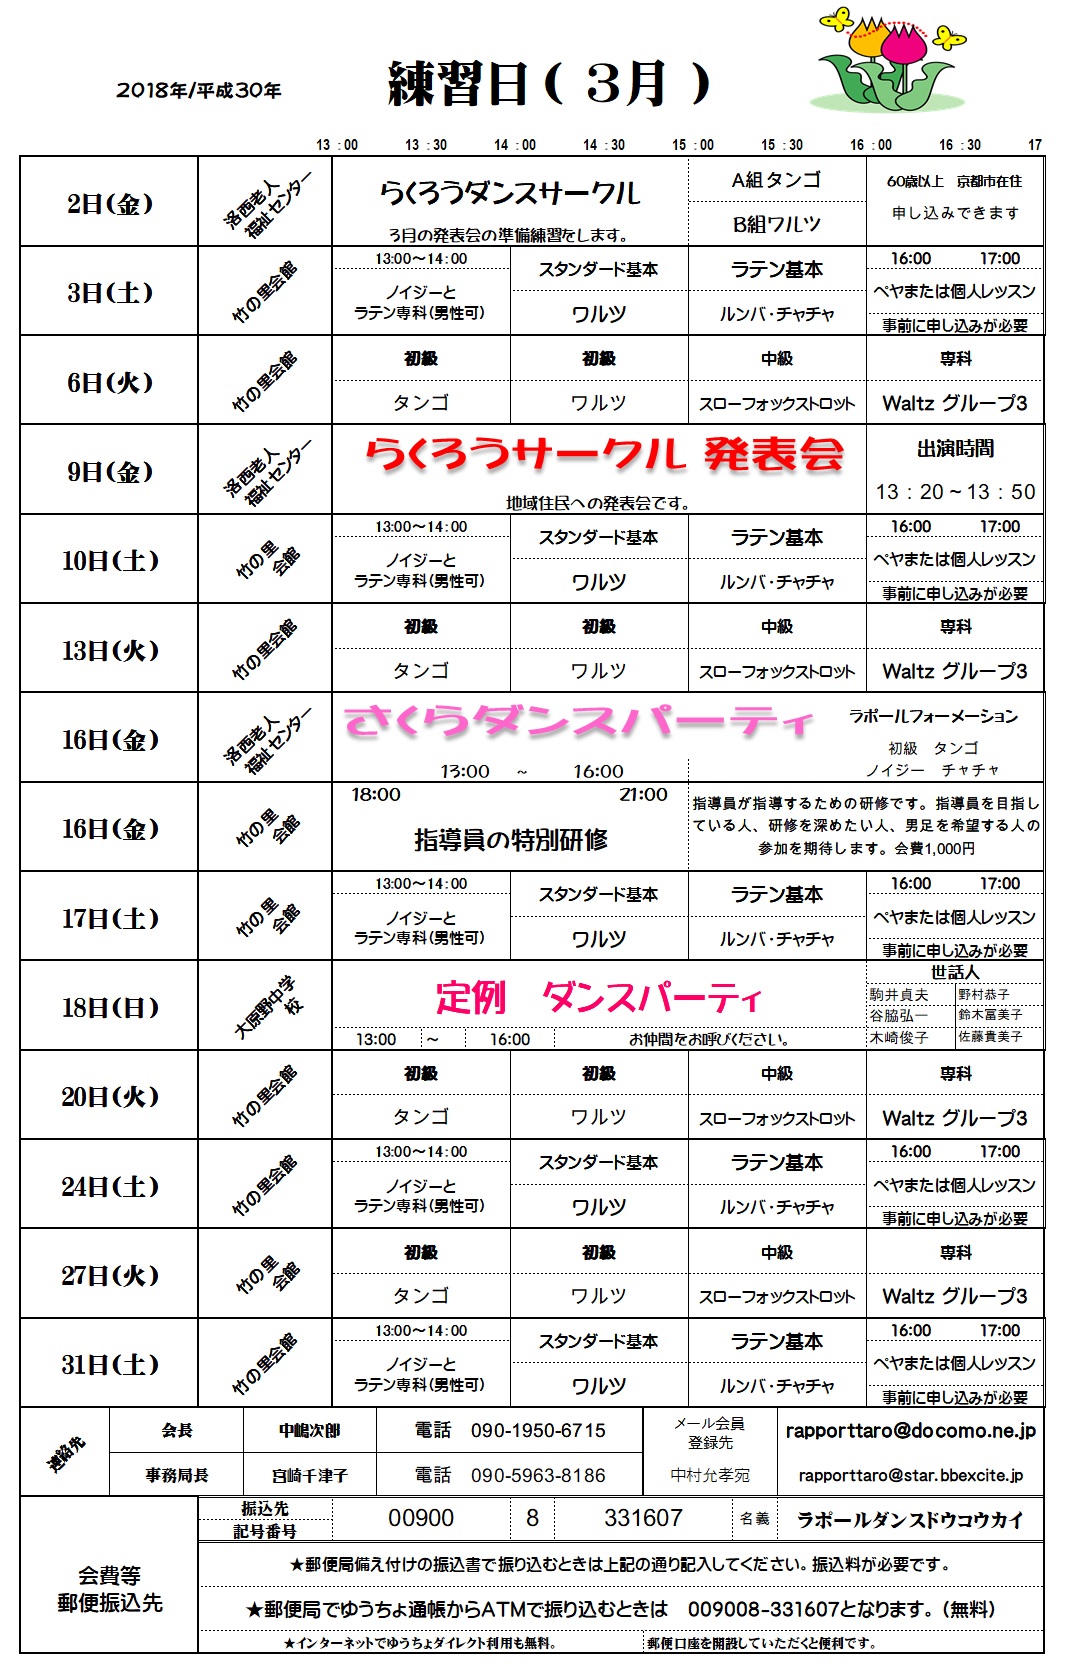 2018年/平成30年
練習日( 3月 )
13：00 13：30 14：00 14：30 15：00 15：30 16：00 16：30 17
2日(金)
洛西老人
福祉センター
らくろうダンスサークル
3月の発表会の準備練習をします。
A組タンゴ
B組ワルツ
60歳以上　京都市在住
申し込みできます
3日(土)
竹の里会館
13:00～14:00
ノイジーと
ラテン専科(男性可)
スタンダード基本
ワルツ
ラテン基本
ルンバ・チャチャ
16:00 17:00
ペヤまたは個人レッスン
事前に申し込みが必要
6日(火)
竹の里会館
初級
タンゴ
初級
ワルツ
中級
スローフォックストロット
専科
Waltz グループ3
9日(金)
洛西老人
福祉センター
らくろうサークル 発表会
地域住民への発表会です。
出演時間
13：20～13：50
10日(土)
竹の里
会館
13:00～14:00
ノイジーと
ラテン専科(男性可)
スタンダード基本
ワルツ
ラテン基本
ルンバ・チャチャ
16:00 17:00
ペヤまたは個人レッスン
事前に申し込みが必要
13日(火)
竹の里会館
初級
タンゴ
初級
ワルツ
中級
スローフォックストロット
専科
Waltz グループ3
16日(金)
洛西老人
福祉センター
さくらダンスパーティ
13:00 ～ 16:00
ラポールフォーメーション
初級　タンゴ
ノイジー　チャチャ
16日(金)
竹の里
会館
18:00 21:00
指導員の特別研修
指導員が指導するための研修です。指導員を目指し
ている人、研修を深めたい人、男足を希望する人の
参加を期待します。会費1,000円
17日(土)
竹の里
会館
13:00～14:00
ノイジーと
ラテン専科(男性可)
スタンダード基本
ワルツ
ラテン基本
ルンバ・チャチャ
16:00 17:00
ペヤまたは個人レッスン
事前に申し込みが必要
18日(日)
大原野中学
校
定例　ダンスパーティ
13:00 ～ 16:00 お仲間をお呼びください。
世話人
駒井貞夫 野村恭子
谷脇弘一 鈴木富美子
木崎俊子 佐藤貴美子
20日(火)
竹の里会館
初級
タンゴ
初級
ワルツ
中級
スローフォックストロット
専科
Waltz グループ3
24日(土)
竹の里会館
13:00～14:00
ノイジーと
ラテン専科(男性可)
スタンダード基本
ワルツ
ラテン基本
ルンバ・チャチャ
16:00 17:00
ペヤまたは個人レッスン
事前に申し込みが必要
27日(火)
竹の里
会館
初級
タンゴ
初級
ワルツ
中級
スローフォックストロット
専科
Waltz グループ3
31日(土)
竹の里会館
13:00～14:00
ノイジーと
ラテン専科(男性可)
スタンダード基本
ワルツ
ラテン基本
ルンバ・チャチャ
16:00 17:00
ペヤまたは個人レッスン
事前に申し込みが必要
連絡先
会長 中嶋次郎 電話　090-1950-6715
事務局長 宮崎千津子 電話　090-5963-8186
メール会員
登録先
中村允孝宛
rapporttaro@docomo.ne.jp
rapporttaro@star.bbexcite.jp
会費等
郵便振込先
振込先
記号番号
00900 8 331607 名義 ラポールダンスドウコウカイ
★郵便局備え付けの振込書で振り込むときは上記の通り記入してください。振込料が必要です。
★郵便局でゆうちょ通帳からATMで振り込むときは　009008-331607となります。(無料)
★インターネットでゆうちょダイレクト利用も無料。 郵便口座を開設していただくと便利です。